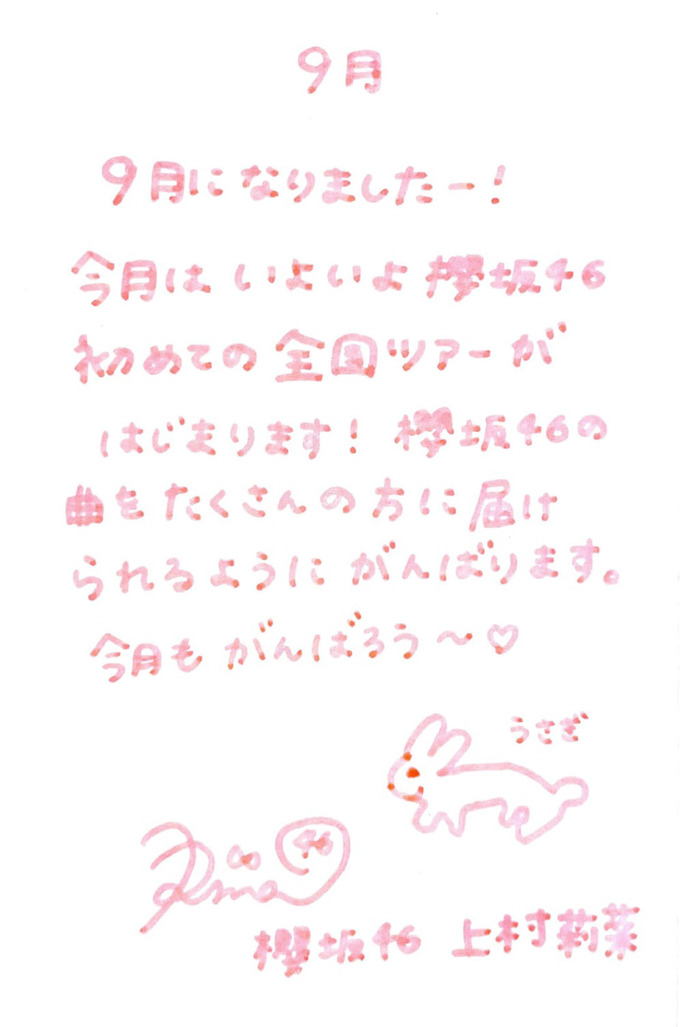 9月
9月になりましたー!
今月はいよいよ欅坂46
初めての全国ツアーが
はじまります! 欅坂46の
曲をたくさんの方に届け
られるようにがんばります。
今月もがんばろう〜♡
うさぎ
Rina
46
欅坂46 上村莉菜